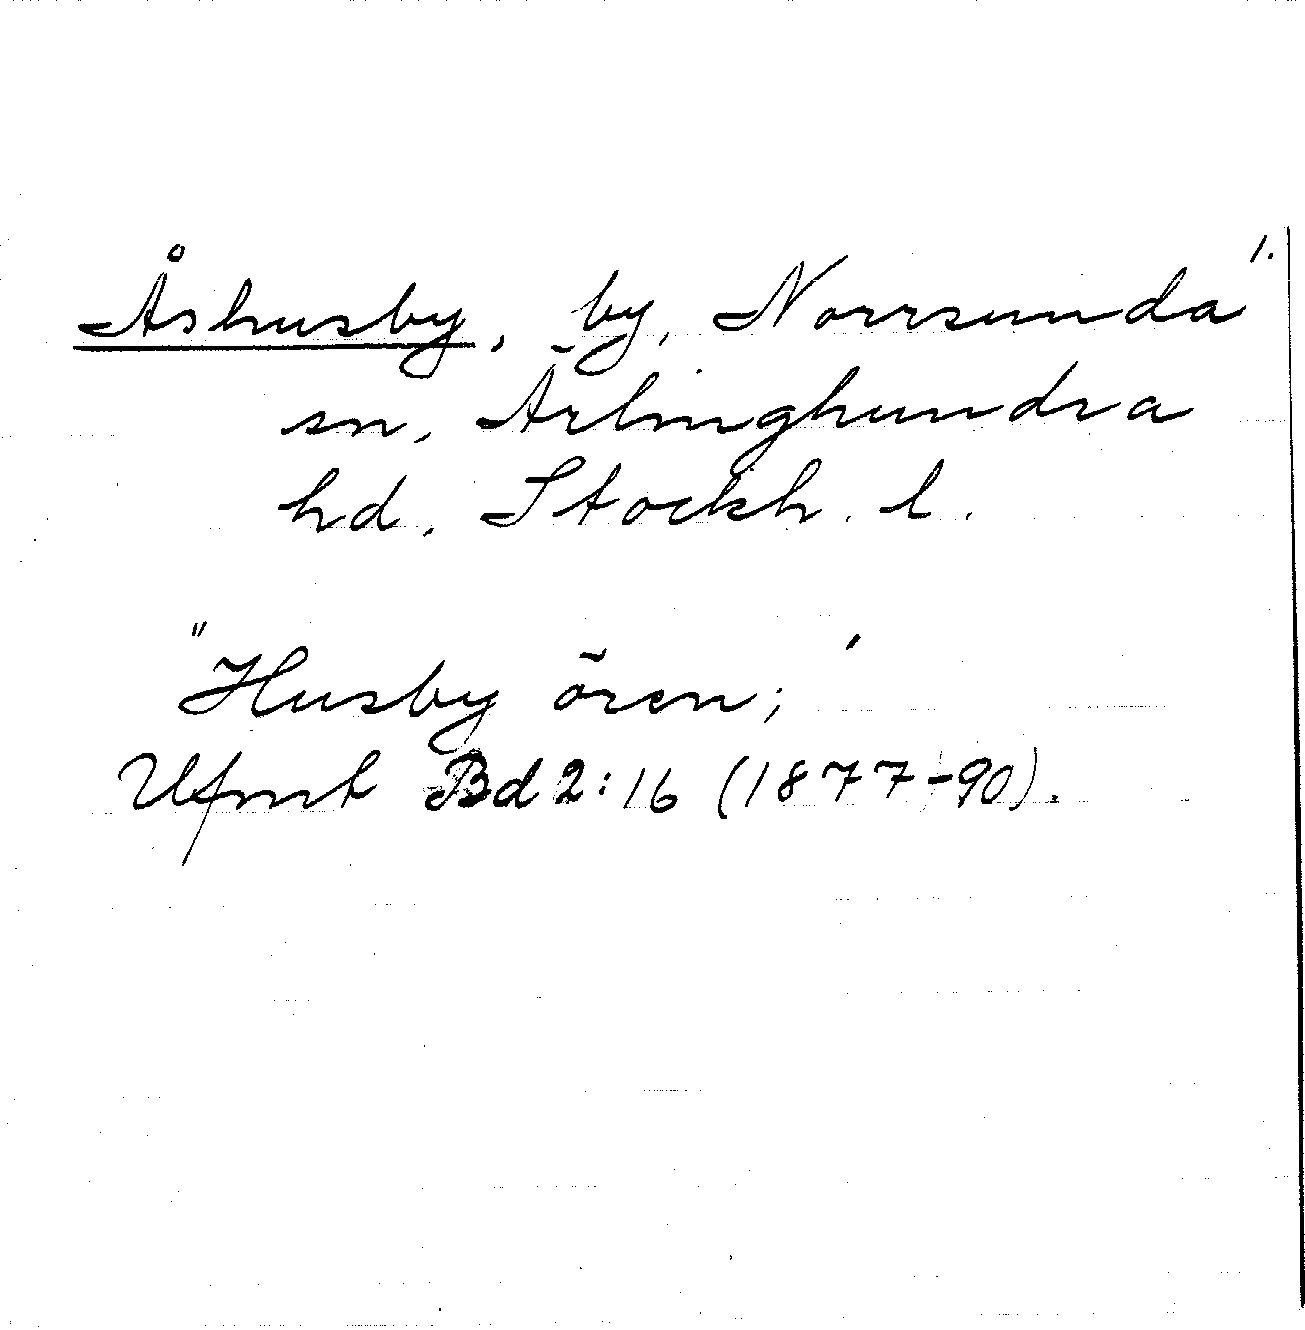 1.
Åshusby, by, Norrsunda
sn, Ärlinghundra
hd. Stockh. l.
"Husby ören;'
Ufmt Bd 2:16 (1877-90).